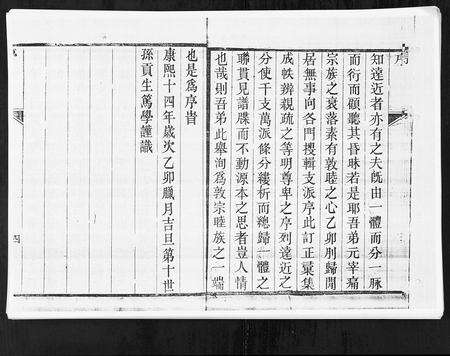 序
知遠近者亦有之夫旣由一體而分一脉
而衍而顧聽其昏昧若是耶吾弟元宰痛
宗族之衰落素有敦睦之心乙卯刖歸閒
居無事向各門搜輯支派序此訂正彚集
成帙辨親疏之等明尊卑之序列遠近之
分使干支萬派條分縷析而總歸一體之
聯貫見譜牒而不動源本之思者豈人情
也哉則吾弟此舉洵爲敦宗睦族之一端
也是爲序旹
康熙十四年歲次乙卯臘月吉旦第十世
孫貢生篤學謹識
四